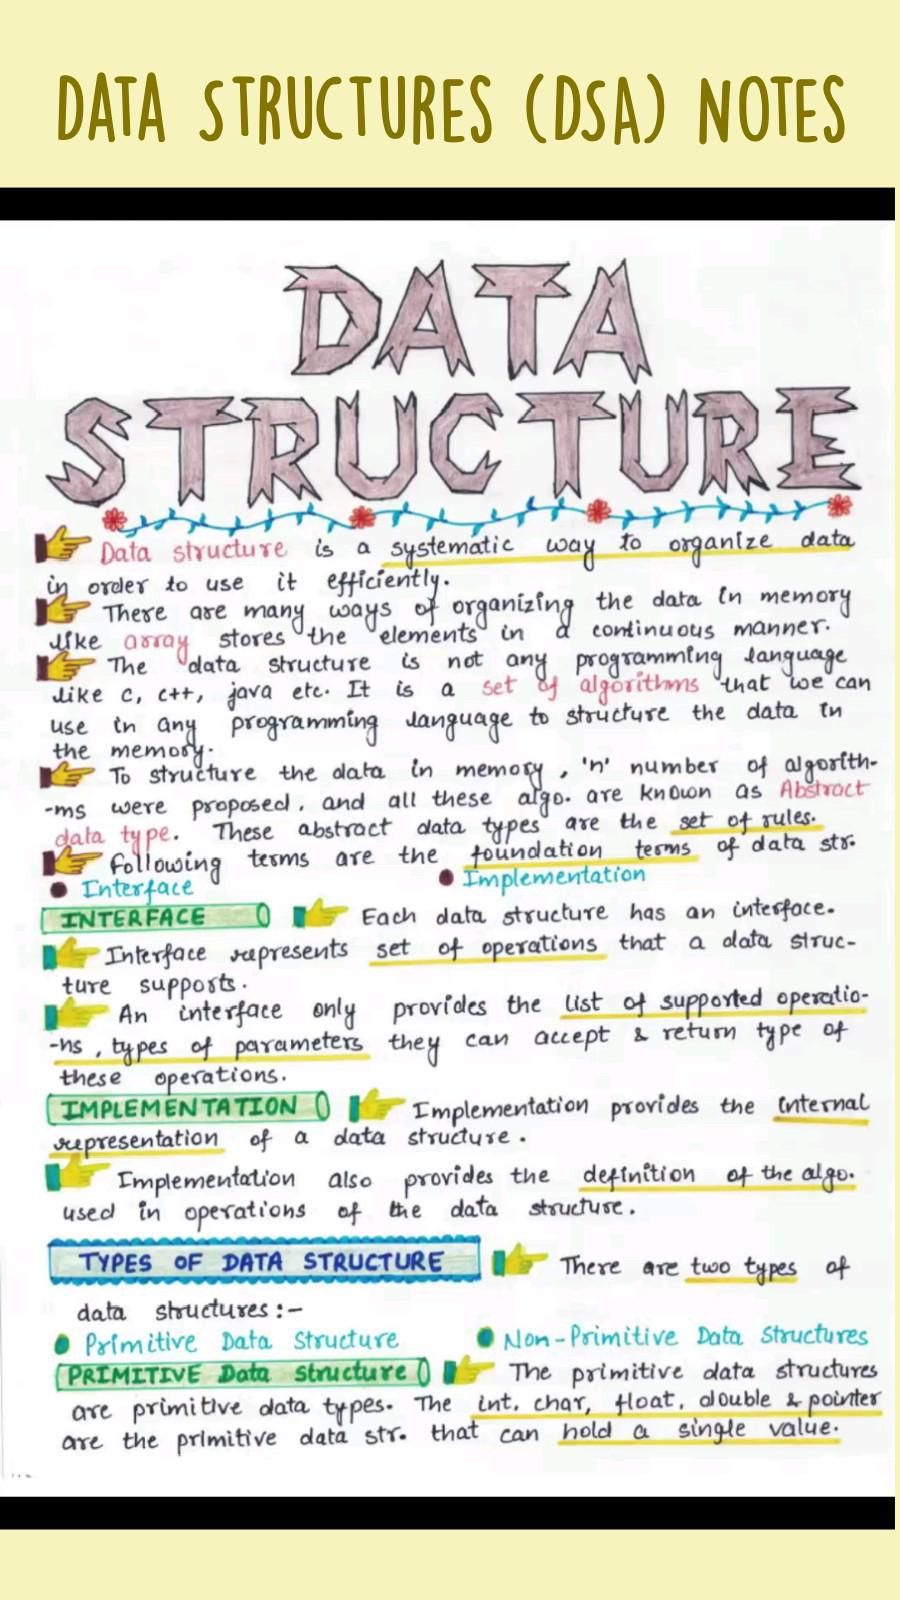 DATA STRUCTURES (DSA) NOTES
DATA
STRUCTURE
Data structure is a systematic way to organize data
in order to use it efficiently.
There are many ways of organizing the data in memory
like array stores the elements in a continuous manner.
The data structure is not any programming language
like C, C++, java etc. It is a set of algorithms that we can
use in any programming language to structure the data in
the memory.
To structure the data in memory, 'n' number of algorith-
-ms were proposed, and all these algo. are known as Abstract
data type. These abstract data types are the set of rules.
Following terms are the foundation terms of data str.
Interface Implementation
INTERFACE Each data structure has an interface.
Interface represents set of operations that a data struc-
ture supports.
An interface only provides the list of supported operatio-
-ns, types of parameters they can accept & return type of
these operations.
IMPLEMENTATION Implementation provides the internal
representation of a data structure.
Implementation also provides the definition of the algo.
used in operations of the data structure.
TYPES OF DATA STRUCTURE There are two types of
data structures:-
Primitive Data Structure Non-Primitive Data Structures
PRIMITIVE Data structure The primitive data structures
are primitive data types. The int, char, float, double & pointer
are the primitive data str. that can hold a single value.